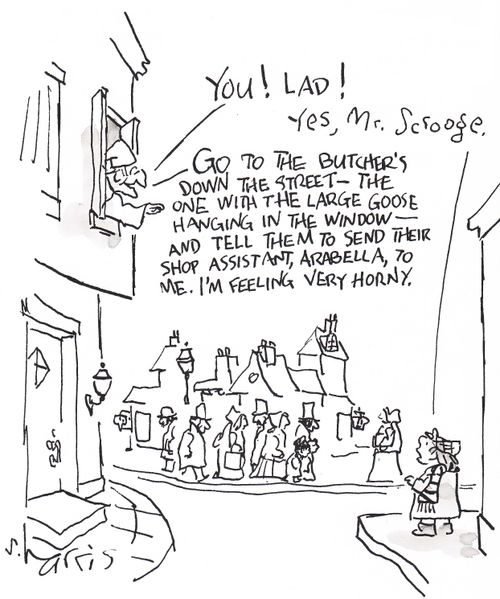 YOU! LAD!
Yes, Mr. Scrooge.
GO TO THE BUTCHER'S
DOWN THE STREET— THE
ONE WITH THE LARGE GOOSE
HANGING IN THE WINDOW—
AND TELL THEM TO SEND THEIR
SHOP ASSISTANT, ARABELLA, TO
ME. I'M FEELING VERY HORNY.
S. Harris